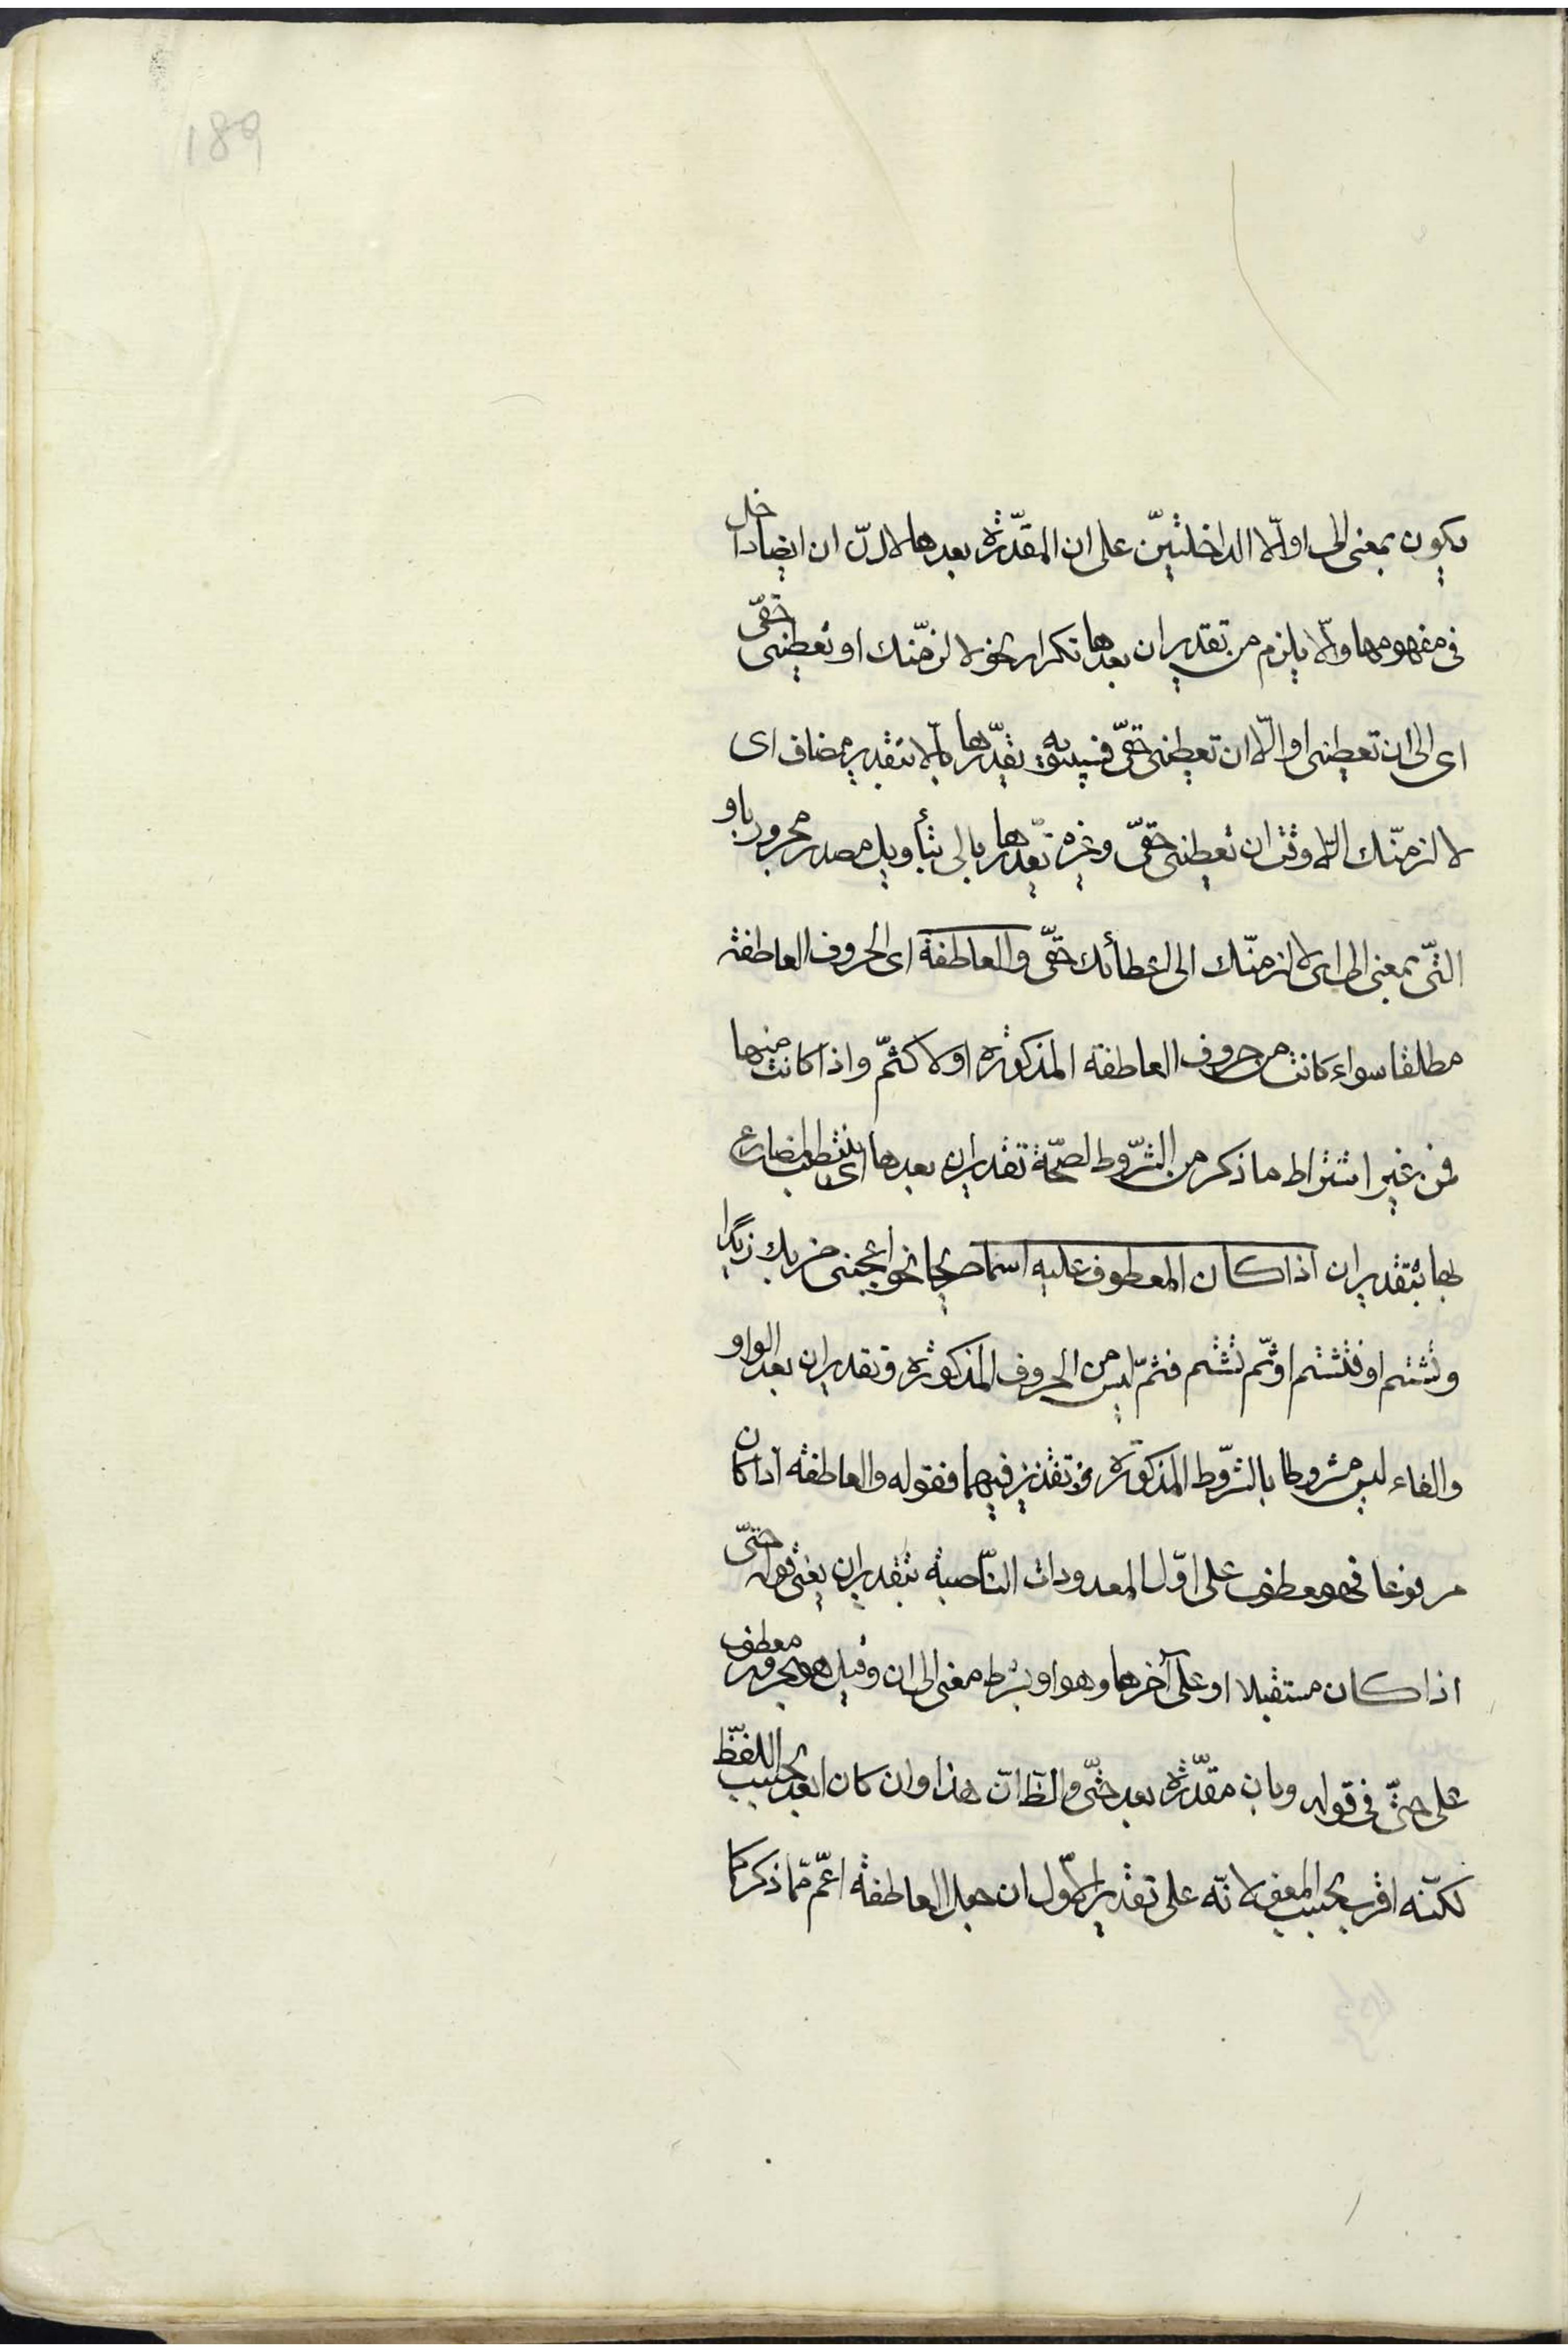 189
يكون بمعنى الى او الّا الداخلتين على ان المقدّرة بعدها لا لانّ ان ايضا داخل
فى مفهومها والّا يلزم من تقدير ان بعدها تكرار نحو لا لزمنّك او تعطينى حقّى
اى الى ان تعطينى او الّا ان تعطينى حقّى فسيبويه يقدّرها بالّا بتقدير مضاف اى
لا لزمنّك الّا وقت ان تعطينى حقّى وغيره يقدّرها بالى بتأويل مصدر مجرور باو
التّى بمعنى الى اى لا لزمنّك الى اعطائك حقّى والعاطفة اى الحروف العاطفة
مطلقا سواء كانت من حروف العاطفة المذكورة او لا كثمّ واذا كانت منها
فمن غير اشتراط ما ذكر من الشّروط لصحّة تقدير ان بعدها اى ينتصب المضارع
بها بتقدير ان اذا كان المعطوف عليه اسما صريحا نحو اعجبنى ضربك زيدا
وتشتم او فتشتم او ثمّ تشتم فثمّ ليس من الحروف المذكورة وتقدير ان بعد الواو
والفاء ليس مشروطا بالشّروط المذكورة فيهما فقوله والعاطفة اذا كان
مرفوعا فهو معطوف على اوّل المعدودات النّاصبة بتقدير ان يعنى قوله حتّى
اذا كان مستقبلا او على آخرها وهو او بشرط معنى الى ان وقيل هو مجرور معطوف
على حتّى فى قوله وبان مقدّرة بعد حتّى والظّ انّ هذا وان كان ابعد بحسب اللفظ
لكنّه اقرب بحسب المعنى لانّه على تقدير الاوّل ان جعل العاطفة اعمّ ممّا ذكر كما